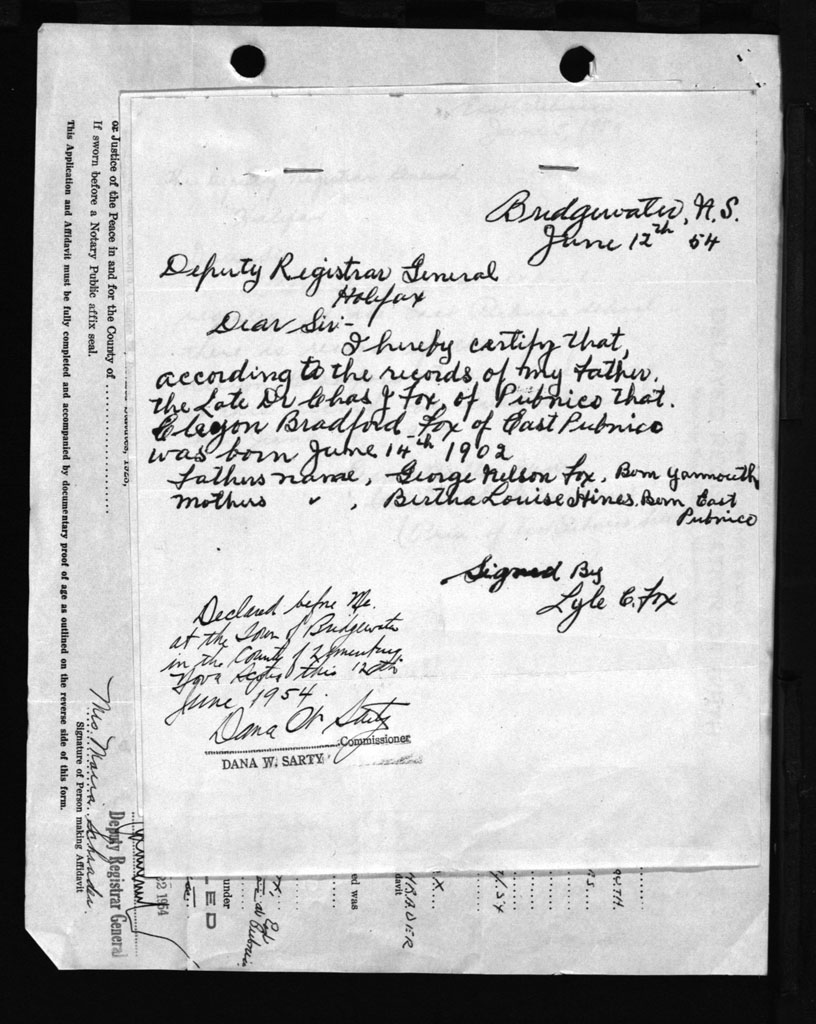 Bridgewater, N.S.
June 12th 54
Deputy Registrar General
Halifax
Dear Sir-
I hereby certify that,
according to the records of my Father.
the Late Dr Chas J Fox, of Pubnico that.
Bradford Fox of East Pubnico
was born June 14th 1902
Fathers name, George Nelson Fox, Born Yarmouth
Mothers " , Bertha Louise Hines. Born East
Pubnico
Signed By
Lyle C. Fox
Declared before Me.
at the Town of Bridgewater
in the County of Lunenburg
Nova Scotia this 12th
June 1954.
Dana W Sarty
Commissioner
DANA W. SARTY
or Justice of the Peace in and for the County of
If sworn before a Notary Public affix seal.
This Application and Affidavit must be fully completed and accompanied by documentary proof of age as outlined on the reverse side of this form.
Mrs. Schrader.
Signature of Person making Affidavit
Deputy Registrar General
22 1954
under
ed was
davit